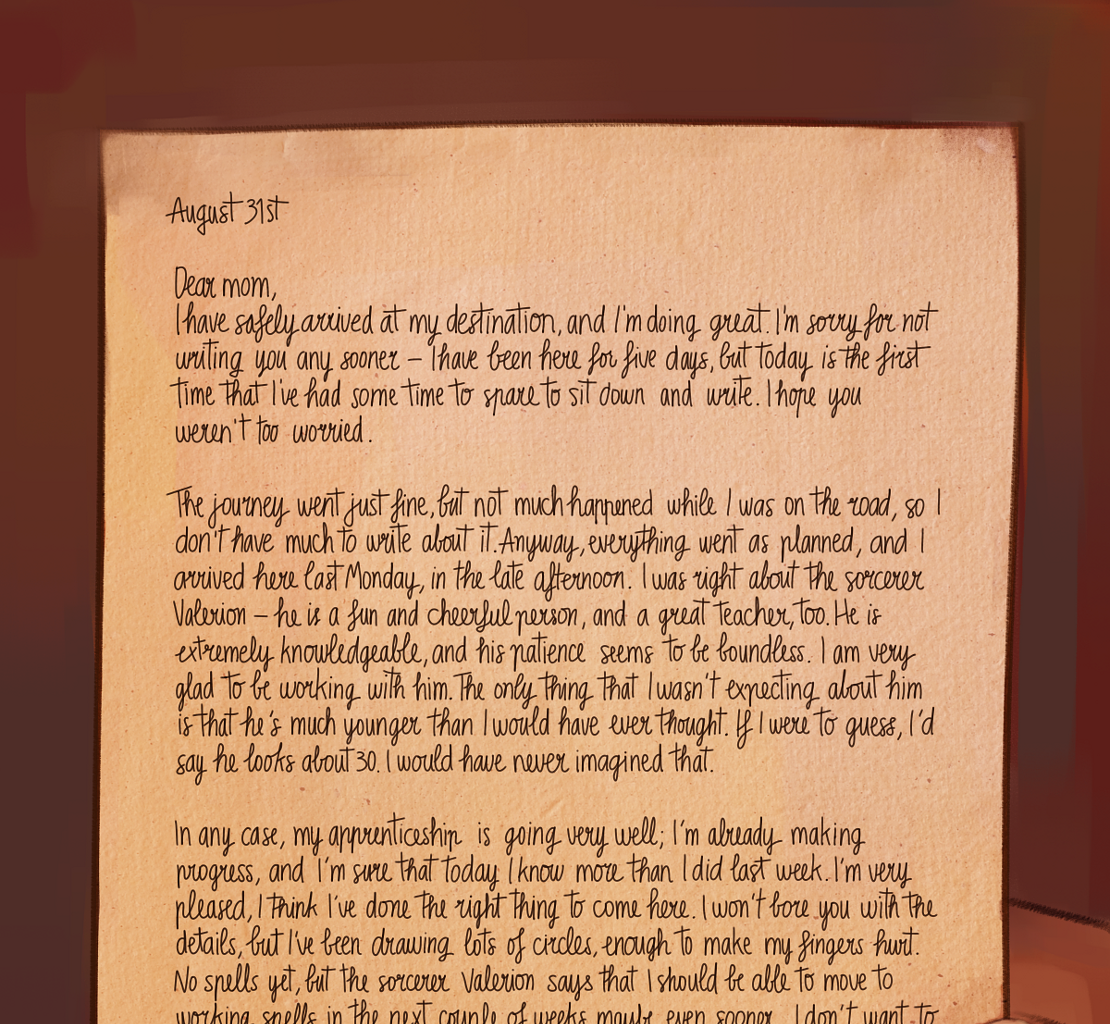 August 31st
Dear mom,
I have safely arrived at my destination, and I'm doing great. I'm sorry for not
writing you any sooner – I have been here for five days, but today is the first
time that I've had some time to spare to sit down and write. I hope you
weren't too worried.
The journey went just fine, but not much happened while I was on the road, so I
don't have much to write about it. Anyway, everything went as planned, and I
arrived here last Monday, in the late afternoon. I was right about the sorcerer
Valerion – he is a fun and cheerful person, and a great teacher, too. He is
extremely knowledgeable, and his patience seems to be boundless. I am very
glad to be working with him. The only thing that I wasn't expecting about him
is that he's much younger than I would have ever thought. If I were to guess, I'd
say he looks about 30. I would have never imagined that.
In any case, my apprenticeship is going very well; I'm already making
progress, and I'm sure that today I know more than I did last week. I'm very
pleased, I think I've done the right thing to come here. I won't bore you with the
details, but I've been drawing lots of circles, enough to make my fingers hurt.
No spells yet, but the sorcerer Valerion says that I should be able to move to
working spells in the next couple of weeks maybe even sooner. I don't want to